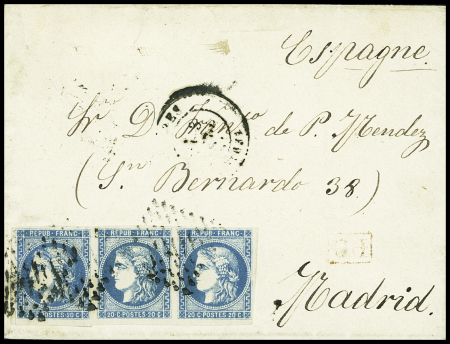 Espagne.
Sr. D. de P. Mendez
(Sn Bernardo 38)
P.D
Madrid.
REPUB. FRANC. REPUB. FRANC. REPUB. FRANC.
20 C. POSTES. 20 C. 20 C. POSTES. 20 C. 20 C. POSTES. 20 C.